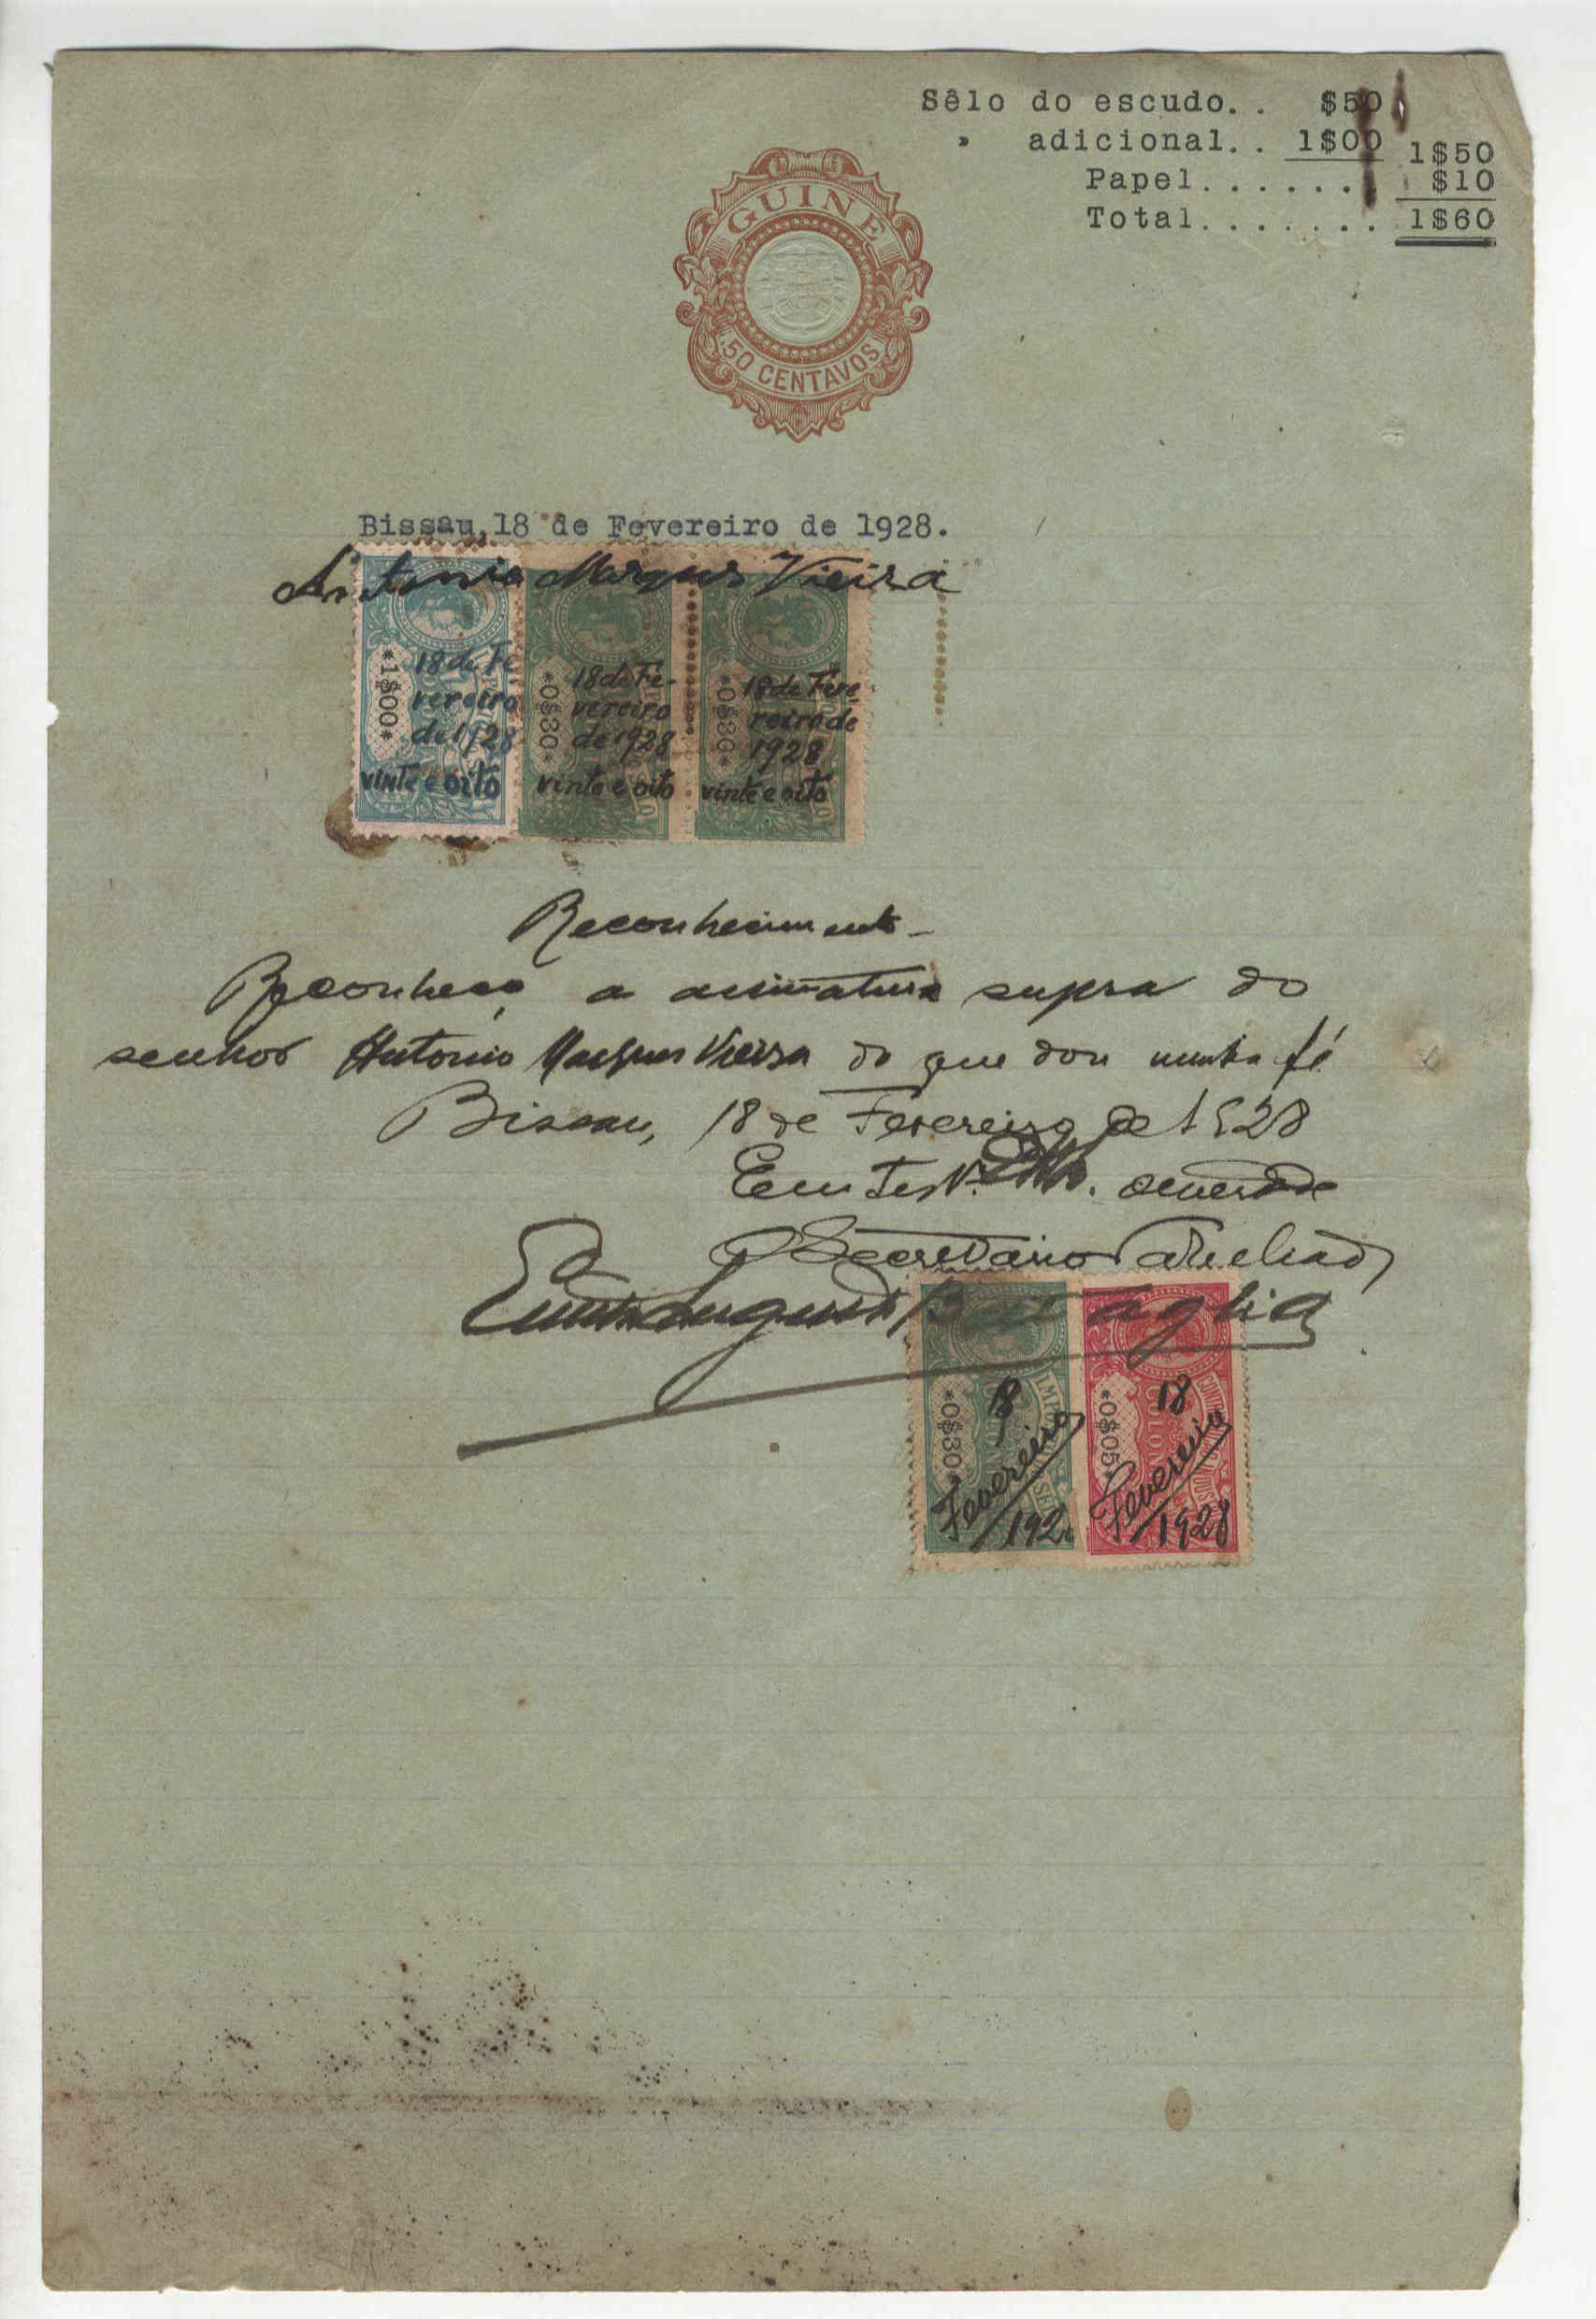 Sêlo do escudo.. $50
" adicional.. 1$00 1$50
Papel...... $10
Total....... 1$60
GUINÉ
50 CENTAVOS
Bissau, 18 de Fevereiro de 1928.
Antonio Marques Vieira
*1$00*
18 de Fe
vereiro
de 1928
vinte e oito
*0$30*
18 de Fe-
vereiro
de 1928
vinte e oito
*0$30*
18 de Feve
reiro de
1928
vinte e oito
Reconhecimento-
Reconheço a assinatura supra do
senhor Antonio Marques Vieira do que dou minha fé
Bissau, 18 de Fevereiro de 1928
Em Test.º de verdade
O Secretario Tabelião
Augusto
*0$30*
18
Fevereiro
192
*0$05*
18
Fevereiro
1928